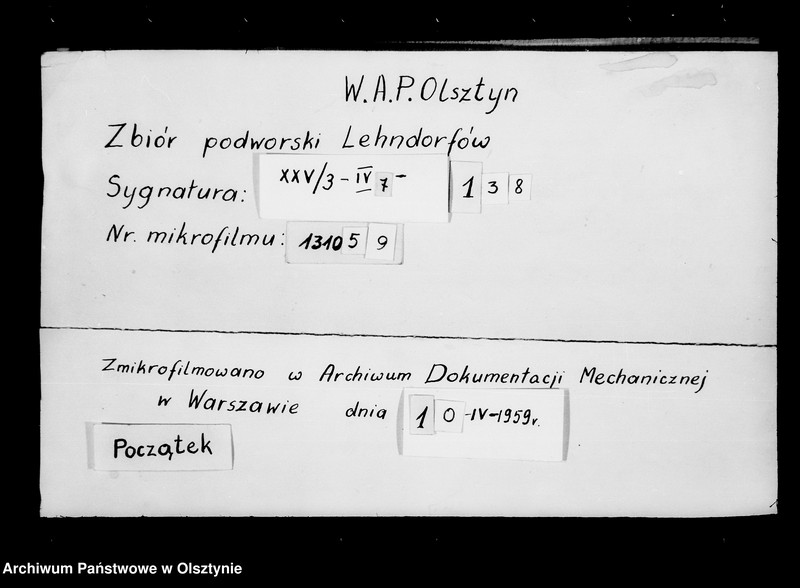 W.A.P. Olsztyn
Zbiór podworski Lehndorfów
Sygnatura: XXV/3-IV 7- 138
Nr. mikrofilmu: 131059
Zmikrofilmowano w Archiwum Dokumentacji Mechanicznej
w Warszawie dnia 10-IV-1959r.
Początek
Archiwum Państwowe w Olsztynie